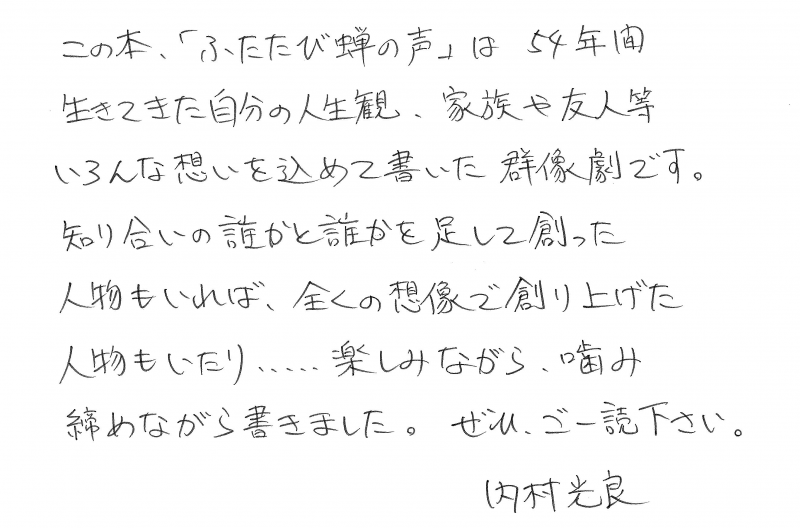 この本、「ふたたび蝉の声」は 54年間
生きてきた自分の人生観、家族や友人等
いろんな想いを込めて書いた 群像劇です。
知り合いの誰かと誰かを足して創った
人物もいれば、全くの想像で創り上げた
人物もいたり、....楽しみながら、噛み
締めながら書きました。 ぜひ、ご一読下さい。
内村光良